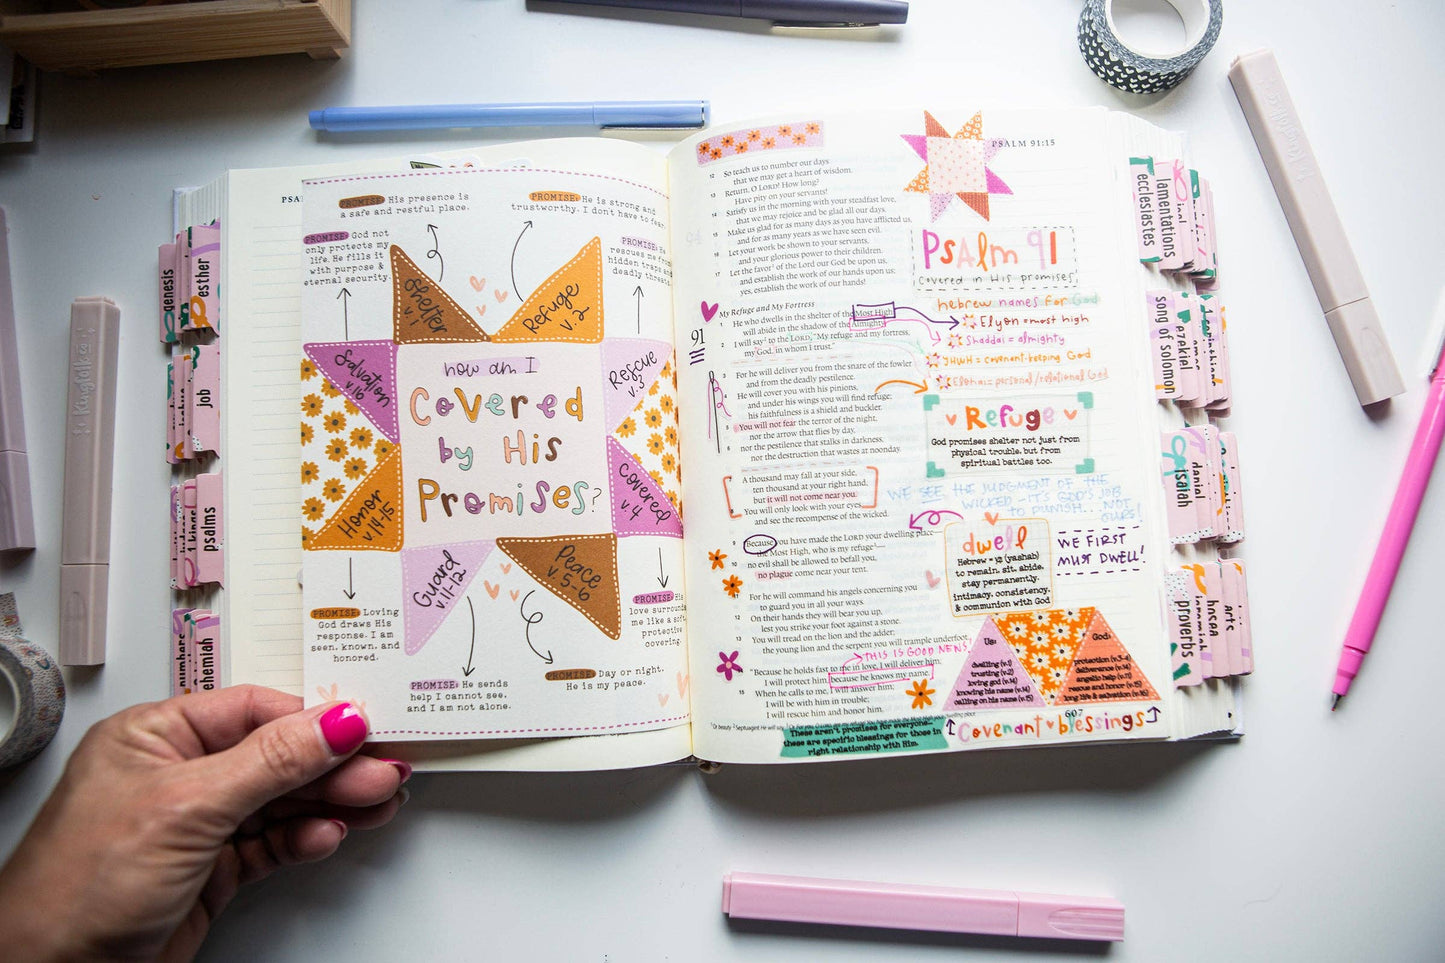 PROMISE: His presence is
a safe and restful place.
PROMISE: He is strong and
trustworthy. I don't have to fear.
PROMISE: God not
only protects my
life. He fills it
with purpose &
eternal security.
PROMISE: He
rescues me from
hidden traps and
deadly threats.
Shelter
v.1
Refuge
v.2
Salvation
v.16
Rescue
v.3
how am I
Covered
by His
Promises?
Honor
v.14-15
Covered
v.4
Guard
v.11-12
Peace
v.5-6
PROMISE: Loving
God draws His
response. I am
seen, known, and
honored.
PROMISE: He sends
help I cannot see.
and I am not alone.
PROMISE: Day or night.
He is my peace.
PROMISE: His
love surrounds
me like a soft
protective
covering.
PSALM 91:15
12 So teach us to number our days
that we may get a heart of wisdom.
13 Return, O LORD! How long?
Have pity on your servants!
14 Satisfy us in the morning with your steadfast love,
that we may rejoice and be glad all our days.
15 Make us glad for as many days as you have afflicted us,
and for as many years as we have seen evil.
16 Let your work be shown to your servants,
and your glorious power to their children.
17 Let the favor of the Lord our God be upon us,
and establish the work of our hands upon us;
yes, establish the work of our hands!
My Refuge and My Fortress
91
1 He who dwells in the shelter of the Most High
will abide in the shadow of the Almighty.
2 I will say to the LORD, "My refuge and my fortress,
my God, in whom I trust."
3 For he will deliver you from the snare of the fowler
and from the deadly pestilence.
4 He will cover you with his pinions,
and under his wings you will find refuge;
his faithfulness is a shield and buckler.
5 You will not fear the terror of the night,
nor the arrow that flies by day,
6 nor the pestilence that stalks in darkness,
nor the destruction that wastes at noonday.
A thousand may fall at your side,
ten thousand at your right hand,
but it will not come near you.
You will only look with your eyes
and see the recompense of the wicked.
9 Because you have made the LORD your dwelling place—
the Most High, who is my refuge—
10 no evil shall be allowed to befall you,
no plague come near your tent.
For he will command his angels concerning you
to guard you in all your ways.
12 On their hands they will bear you up,
lest you strike your foot against a stone.
13 You will tread on the lion and the adder;
the young lion and the serpent you will trample underfoot.
"Because he holds fast to me in love, I will deliver him;
I will protect him, because he knows my name.
15 When he calls to me, I will answer him;
I will be with him in trouble;
I will rescue him and honor him.
Psalm 91
Covered in His promises!
hebrew names for God
Elyon = most high
Shaddai = almighty
YHWH = covenant-keeping God
Elohai = personal/relational God
Refuge
God promises shelter not just from
physical trouble, but from
spiritual battles too.
WE SEE THE JUDGMENT OF THE
WICKED - IT'S GOD'S JOB
TO PUNISH... NOT
OURS!
dwell
Hebrew = (yashab)
to remain, sit, abide,
stay permanently.
intimacy, consistency,
& communion with God
WE FIRST
MUST DWELL!
THIS IS GOOD NEWS!
Us:
dwelling (v.1)
trusting (v.2)
loving god (v.14)
knowing his name (v.14)
calling on his name (v.15)
God:
protection (v.3-4)
deliverance (v.14)
angelic help (v.11)
rescue and honor (v.15)
long life & salvation (v.16)
607
Covenant blessings
These aren't promises for everyone...
these are specific blessings for those in
right relationship with Him.
genesis
esther
job
psalms
nehemiah
numbers
ecclesiastes
lamentations
song of solomon
ezekiel
isaiah
daniel
proverbs
hosea
acts
Kingfolk co